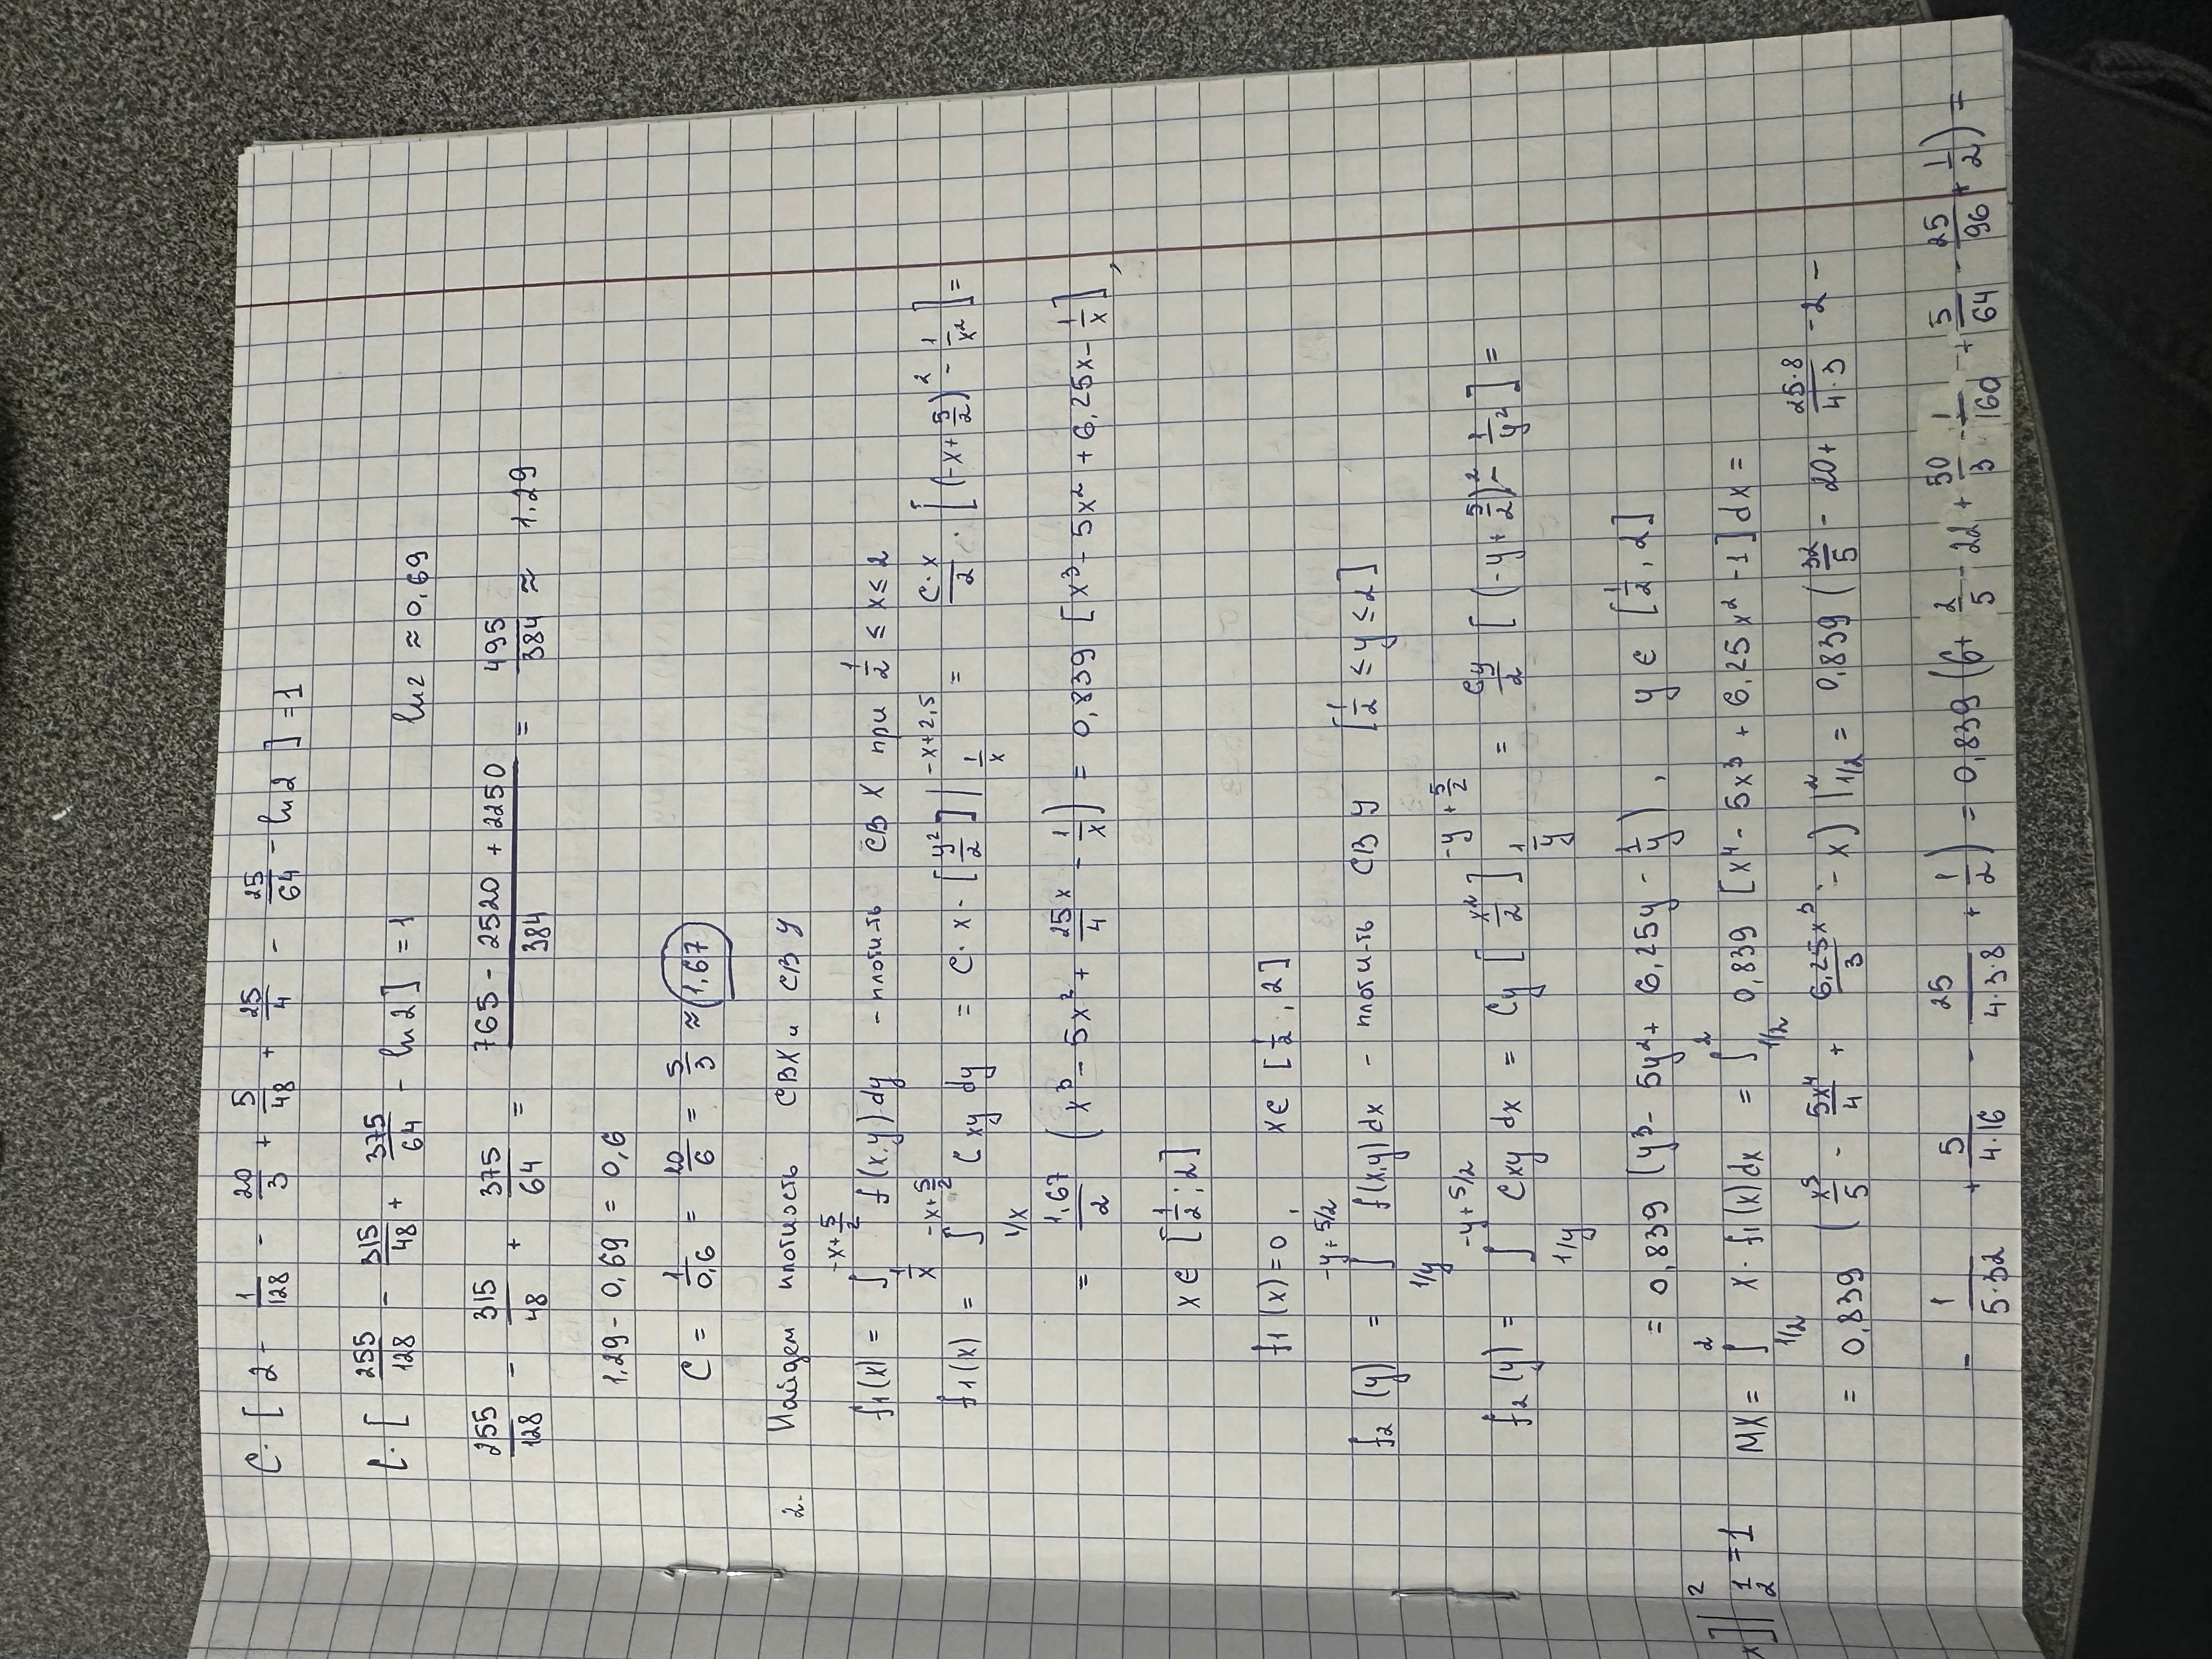 C · [ 2 - 1/128 - 20/3 + 5/48 + 25/4 - 25/64 - ln 2 ] = 1
C · [ 255/128 - 315/48 + 375/64 - ln 2 ] = 1 ln 2 ≈ 0.69
255/128 - 315/48 + 375/64 = (765 - 2520 + 2250)/384 = 495/384 ≈ 1.29
1.29 - 0,69 = 0,6
C = 1/0,6 = 10/6 = 5/3 ≈ 1,67
2. Найдем плотность СВ X и СВ Y
f₁(x) = ∫_{1/x}^{-x+5/2} f(x,y) dy - плотн-ть СВ X при 1/2 ≤ x ≤ 2
f₁(x) = ∫_{1/x}^{-x+5/2} Cxy dy = C · x · [y²/2] |_{1/x}^{-x+2,5} = (C·x)/2 · [(-x+5/2)² - 1/x²] =
= 1,67/2 (x³ - 5x² + 25/4 x - 1/x) = 0,839 [x³ - 5x² + 6,25x - 1/x],
x ∈ [1/2; 2]
f₁(x) = 0, x ∈ [1/2, 2]
f₂(y) = ∫_{1/y}^{-y+5/2} f(x,y) dx - плотн-ть СВ Y [1/2 ≤ y ≤ 2]
f₂(y) = ∫_{1/y}^{-y+5/2} Cxy dx = Cy [x²/2]_{1/y}^{-y+5/2} = Cy/2 [(-y+5/2)² - 1/y²] =
= 0,839 (y³ - 5y² + 6,25y - 1/y), y ∈ [1/2, 2]
x]|_{1/2}^{2} = 1
MX = ∫_{1/2}^{2} x · f₁(x) dx = ∫_{1/2}^{2} 0,839 [x⁴ - 5x³ + 6,25x² - 1] dx =
= 0,839 (x⁵/5 - 5x⁴/4 + 6,25x³/3 - x) |_{1/2}^{2} = 0,839 (32/5 - 20 + 25·8/4·3 - 2 -
- 1/5·32 + 5/4·16 - 25/4·3·8 + 1/2) = 0,839 (6 + 2/5 - 22 + 50/3 - 1/160 + 5/64 - 25/96 + 1/2) =